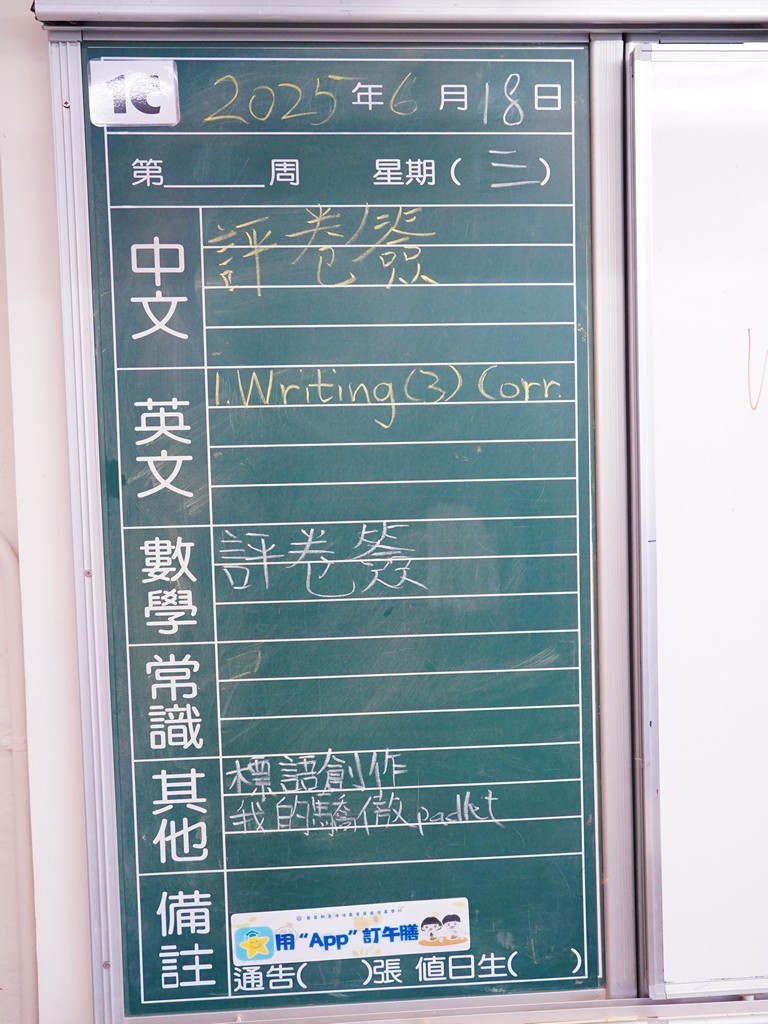 1C
2025年6月18日
第____周 星期(三)
中文
評卷簽
英文
1. Writing(3) Corr.
數學
評卷簽
常識
其他
標語創作
我的驕傲padlet
備註
用“App”訂午膳
通告( )張 值日生( )